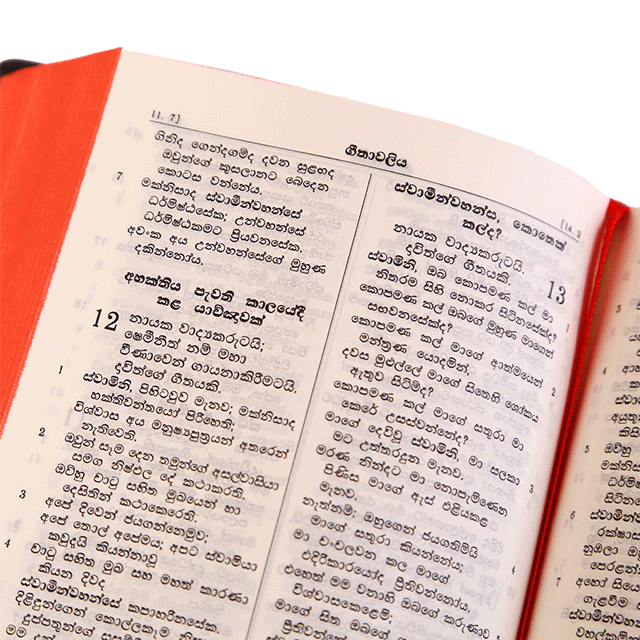 11. 7]
ගීතාවලිය
[14. 2
ගිනිද ගෙන්දගම්ද දවන සුළඟද
ඔවුන්ගේ කුසලානට බෙදෙන
කොටස වන්නේය.
7 මක්නිසාද ස්වාමීන්වහන්සේ
ධර්මිෂ්ඨසේක; උන්වහන්සේ
ධර්මිෂ්ඨකමට ප්‍රියවනසේක.
අවංක අය උන්වහන්සේගේ මුහුණ
දකින්නෝය.
අභක්තිය පැවති කාලයේදී
කළ යාච්ඤාවක්
12 නායක වාද්‍යකරුටයි;
ෂෙමිනීත් නම් මහා
වීණාවෙන් ගායනාකිරීමටයි.
දාවිත්ගේ ගීතයකි.
1 ස්වාමීනි, පිහිටවුව මැනව; මක්නිසාද
භක්තිවන්තයෝ පිරිහෙති;
විශ්වාස අය මනුෂ්‍යපුත්‍රයන් අතරෙන්
නැතිවෙති.
2 ඔවුන් සෑම දෙන තමුන්ගේ අසල්වාසියා
සමග නිෂ්ඵල දේ කථාකරති.
ඔව්හු චාටු සහිත මුඛයෙන් හා
දෙසිතින් කථාකෙරෙති.
3 අපේ දිවෙන් ජයගන්නෙමුව;
අපේ තොල් අපේමය; අපට ස්වාමියා
කවුදැයි කියන්නාවූ
4 චාටු සහිත මුඛ සහ මහත් කාරණා
කියන දිවද
ස්වාමීන්වහන්සේ කපාහරිනසේක.
දිළිඳුන්ගෙන් කොල්ලකෑම නිසාද
දුප්පතුන්ගේ
ස්වාමීන්වහන්ස, කොතෙක්
කල්ද?
නායක වාද්‍යකරුටයි.
දාවිත්ගේ ගීතයකි.
13
1 ස්වාමීනි, ඔබ කොපමණ කල් මා
නිතරම සිහි නොකර සිටිනසේක්ද?
කොපමණ කල් ඔබගේ මුහුණ මාගෙන්
සඟවනසේක්ද?
2 කොපමණ කල් මාගේ ආත්මයෙන්
මන්ත්‍රණ යොදමින්,
දවස මුළුල්ලේ මාගේ සිතෙහි ශෝකය
ඇතුව සිටිම්ද?
කොපමණ කල් මාගේ සතුරා මා
කෙරේ උසස්වන්නේද?
3 මාගේ දෙවිවූ ස්වාමීනි, මා සලකා
මට උත්තරදුන මැනව.
මරණ නින්දට මා නොපැමිණෙන
පිණිස මාගේ ඇස් එළියකළ
මැනව.
4 නැත්නම්; ඔහුගෙන් ජයගතිමියි
මාගේ සතුරා කියන්නේය;
මා චංචලවන කල මාගේ
එදිරිකාරයෝද ප්‍රීතිවන්නෝය.
5 එහෙත් මම වනාහි ඔබගේ කරුණාව
විශ්වාසකෙළෙමි;
මාගේ සිත ඔබගේ
ප්‍රීතිවන්නේය.